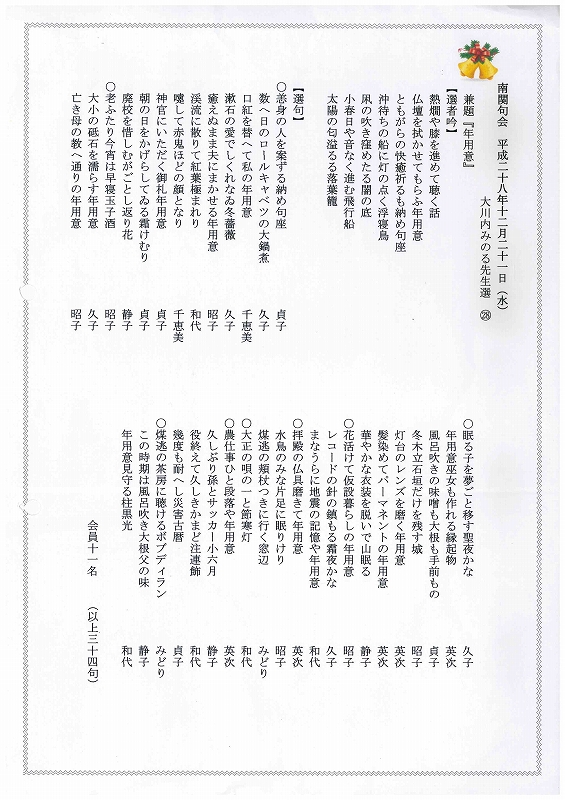 南関句会　平成二十八年十二月二十一日（水）
大川内みのる先生選　㉘
兼題『年用意』
【選者吟】
熱燗や膝を進めて聴く話
仏壇を拭かせてもらふ年用意
ともがらの快癒祈るも納め句座
沖待ちの船に灯の点く浮寝鳥
凩の吹き窪めたる闇の底
小春日や音なく進む飛行船
太陽の匂溢るる落葉籠
【選句】
〇恙身の人を案ずる納め句座　貞子
数へ日のロールキャベツの大鍋煮　久子
口紅を替へて私の年用意　千恵美
漱石の愛でしくれなゐ冬薔薇　久子
癒えぬまま夫にまかせる年用意　昭子
渓流に散りて紅葉極まれり　和代
嚏して赤鬼ほどの顔となり　千恵美
神官にいただく御札年用意　貞子
朝の日をかげらしてゐる霜けむり　貞子
廃校を惜しむがごとし返り花　静子
〇老ふたり今宵は早寝玉子酒　昭子
大小の砥石を濡らす年用意　久子
亡き母の教へ通りの年用意　昭子
〇眠る子を夢ごと移す聖夜かな　久子
年用意巫女も作れる縁起物　英次
風呂吹きの味噌も大根も手前もの　貞子
冬木立石垣だけを残す城　昭子
灯台のレンズを磨く年用意　英次
髪染めてパーマネントの年用意　英次
華やかな衣装を脱いで山眠る　静子
〇花活けて仮設暮らしの年用意　昭子
レコードの針の鎮もる霜夜かな　久子
まなうらに地震の記憶や年用意　和代
〇拝殿の仏具磨きて年用意　英次
水鳥のみな片足に眠りけり　昭子
煤逃の頬杖つきに行く窓辺　みどり
〇大正の唄の一と節寒灯　和代
〇農仕事ひと段落や年用意　英次
久しぶり孫とサッカー小六月　静子
役終えて久しきかまど注連飾　和代
幾度も耐へし災害古暦　貞子
〇煤逃の茶房に聴けるボブディラン　みどり
この時期は風呂吹き大根父の味　静子
年用意見守る柱黒光　和代
会員十一名　（以上三十四句）